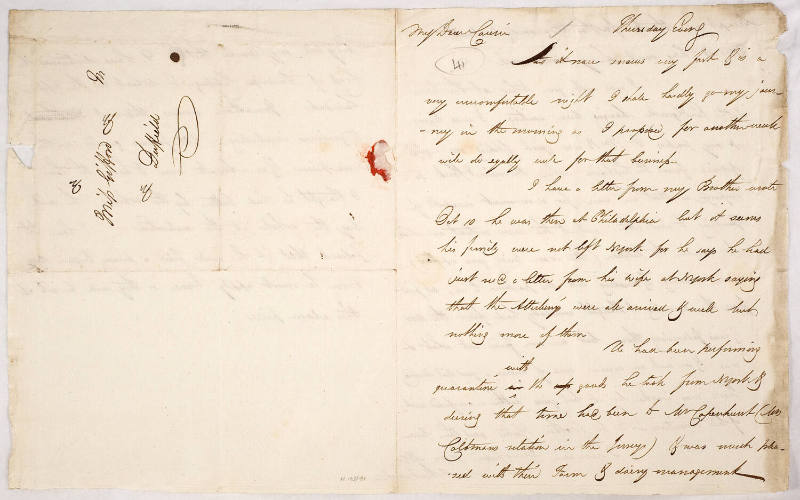 Miss Gifford
Duffield
My Dear Cousin Thursday Eveng
41
As it now snows very fast & is a
very uncomfortable night I shall hardly go my jour-
-ney in the morning as I proposed for another week
will do equally well for that business
I have a letter from my Brother wrote
Oct 10 he was then at Philadelphia but it seems
his family were not left NYork for he says he had
just recd a letter from his wife at NYork saying
that the Atterburys were all arrived & well but
nothing more of them
He had been performing
with
quarantine in the goods he took from NYork &
during that time had been to Mr Capenhurst (Mr
Coltmans relation in the Jerseys) & was much plea
-sed with their Farm & dairy management